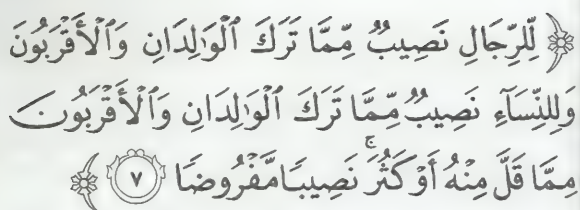 ﴿ لِّلرِّجَالِ نَصِيبٌ مِّمَّا تَرَكَ ٱلْوَٰلِدَانِ وَٱلْأَقْرَبُونَ
وَلِلنِّسَآءِ نَصِيبٌ مِّمَّا تَرَكَ ٱلْوَٰلِدَانِ وَٱلْأَقْرَبُونَ
مِمَّا قَلَّ مِنْهُ أَوْ كَثُرَ ۚ نَصِيبًا مَّفْرُوضًا ٧ ﴾